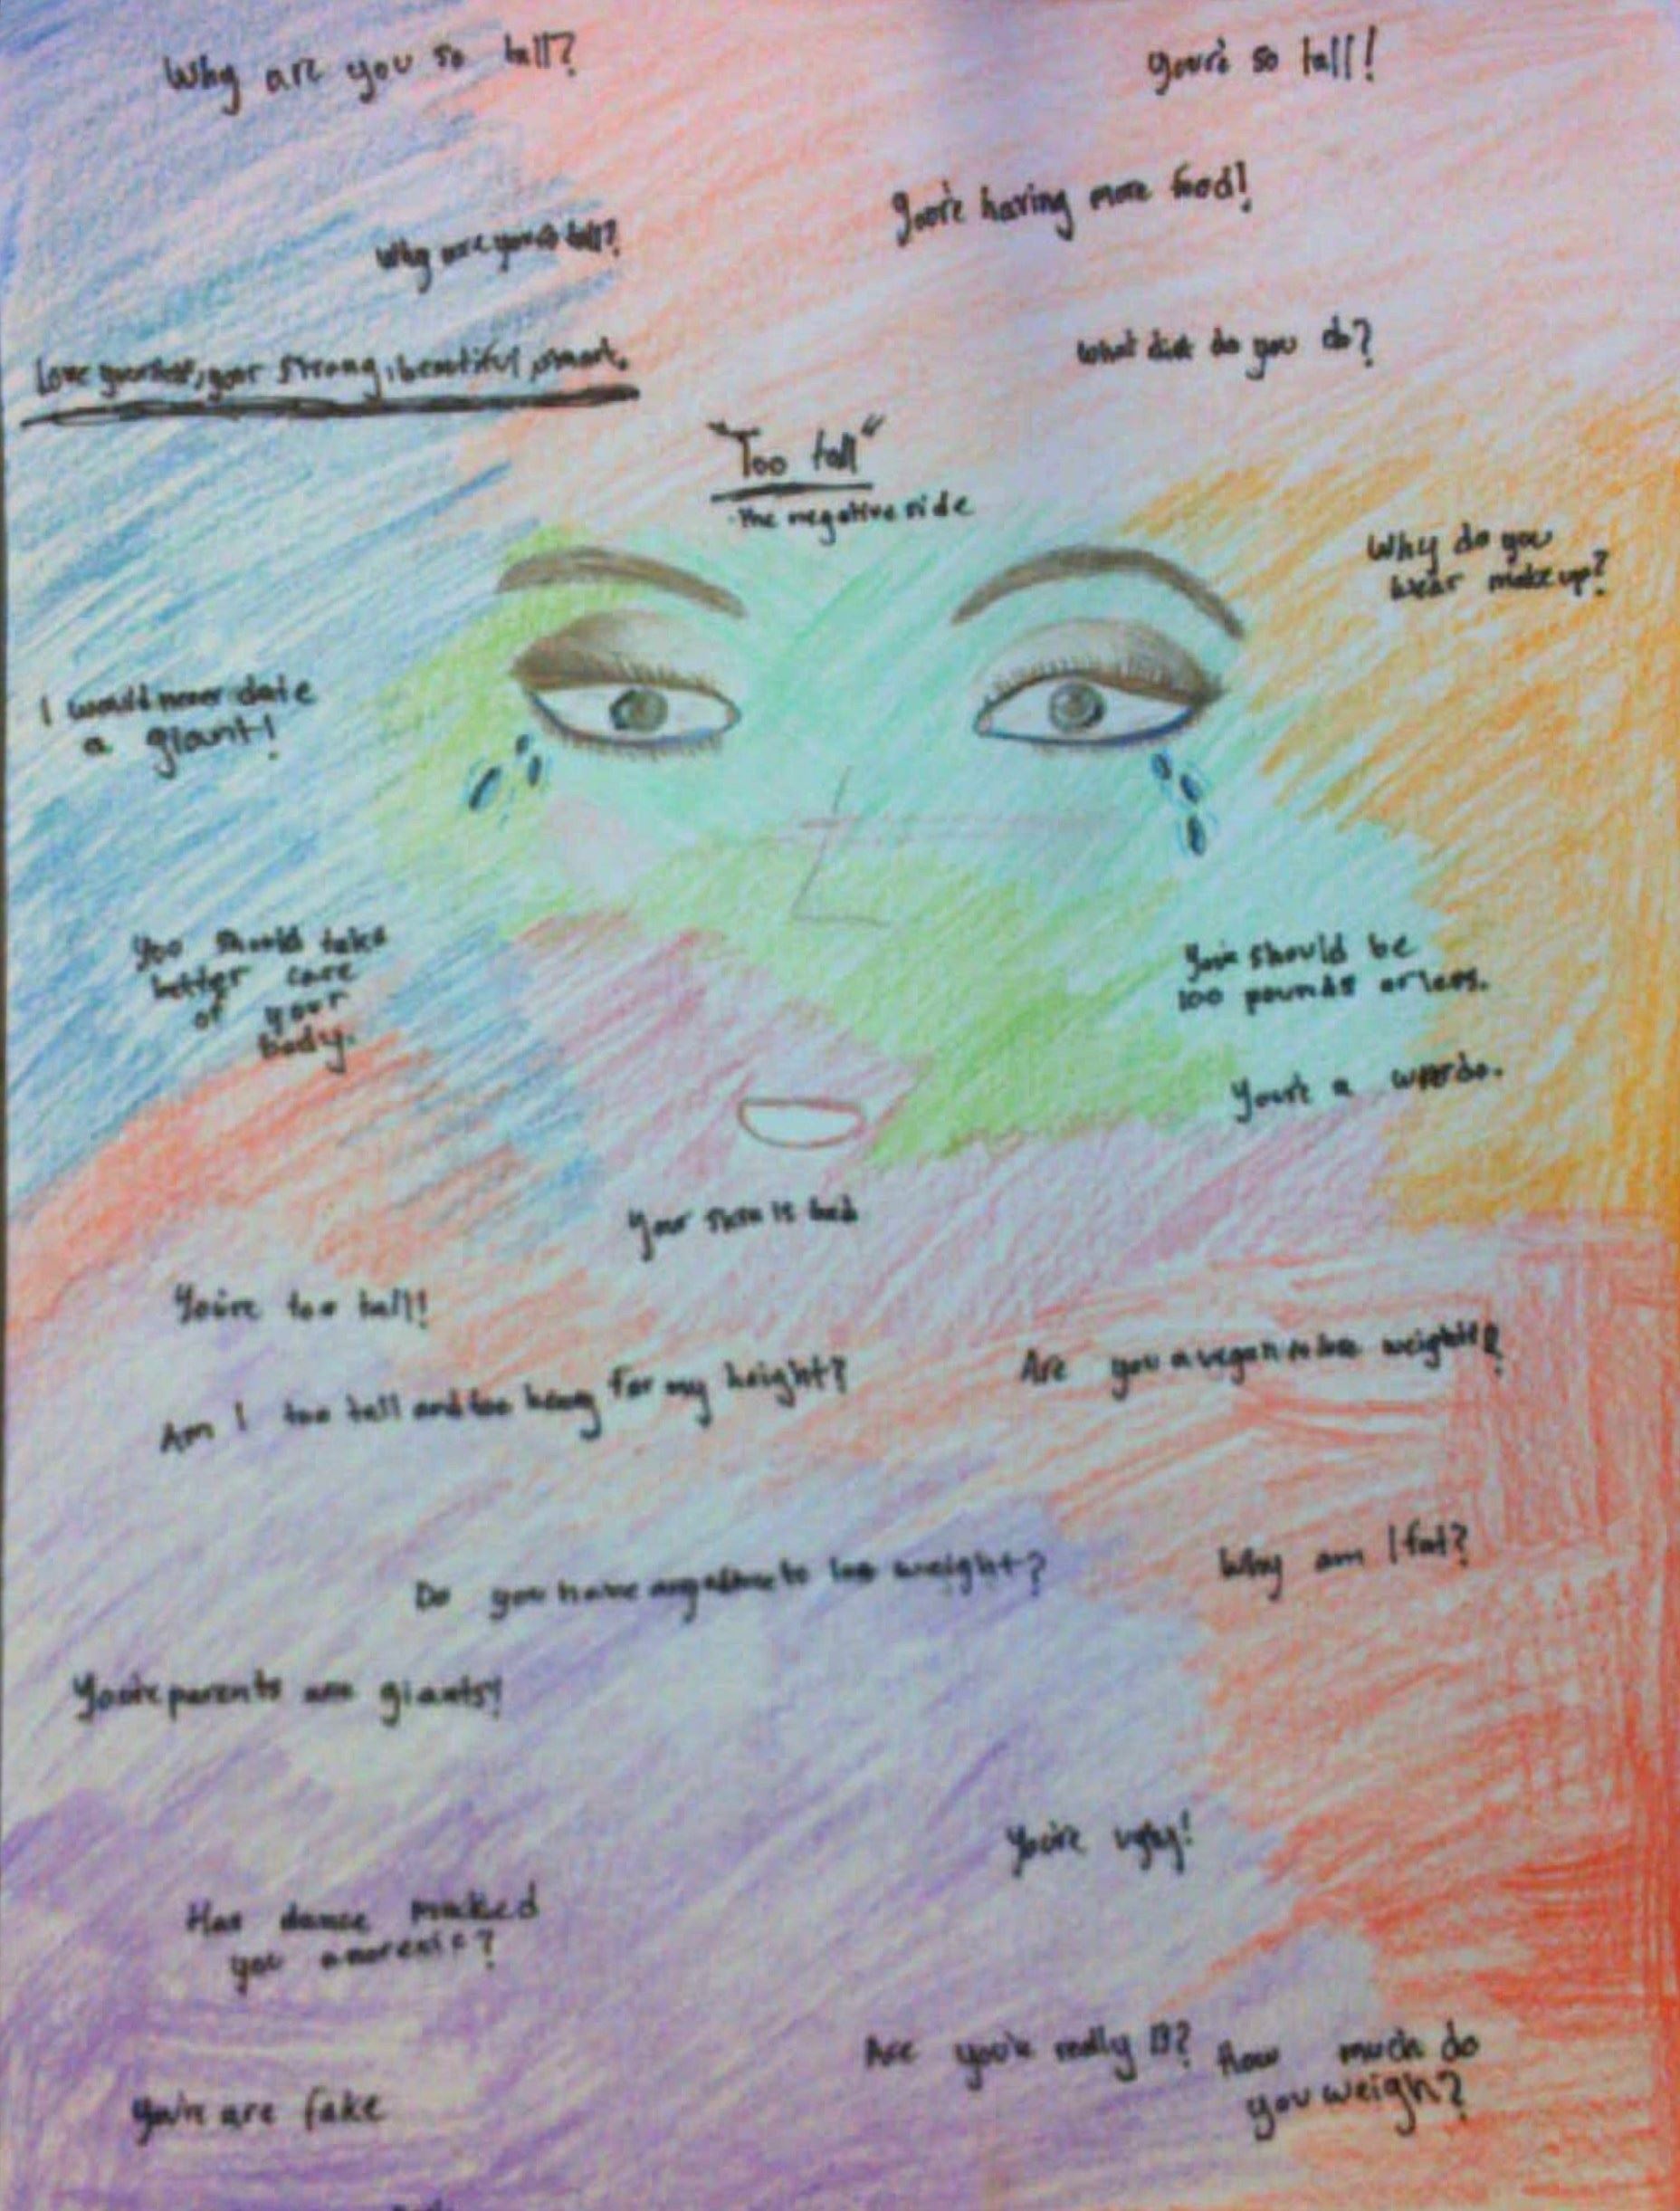 Why are you so tall?
you're so tall!
you're having more food!
Why are you so tall?
What diet do you do?
Love yourself, your strong, beautiful, smart.
"Too tall"
-The negative side
Why do you
wear makeup?
I would never date
a giant!
You should take
better care
of your
body.
You're should be
100 pounds or less.
You're a weirdo.
Your skin is bad
You're too tall!
Am I too tall and too heavy for my height?
Are you a vegan to lose weight?
Do you have to lose weight?
Why am I fat?
You're parents are giants!
You're ugly!
Has dance maked
you anorexic?
Are you're really 13?
How much do
you weigh?
You're are fake